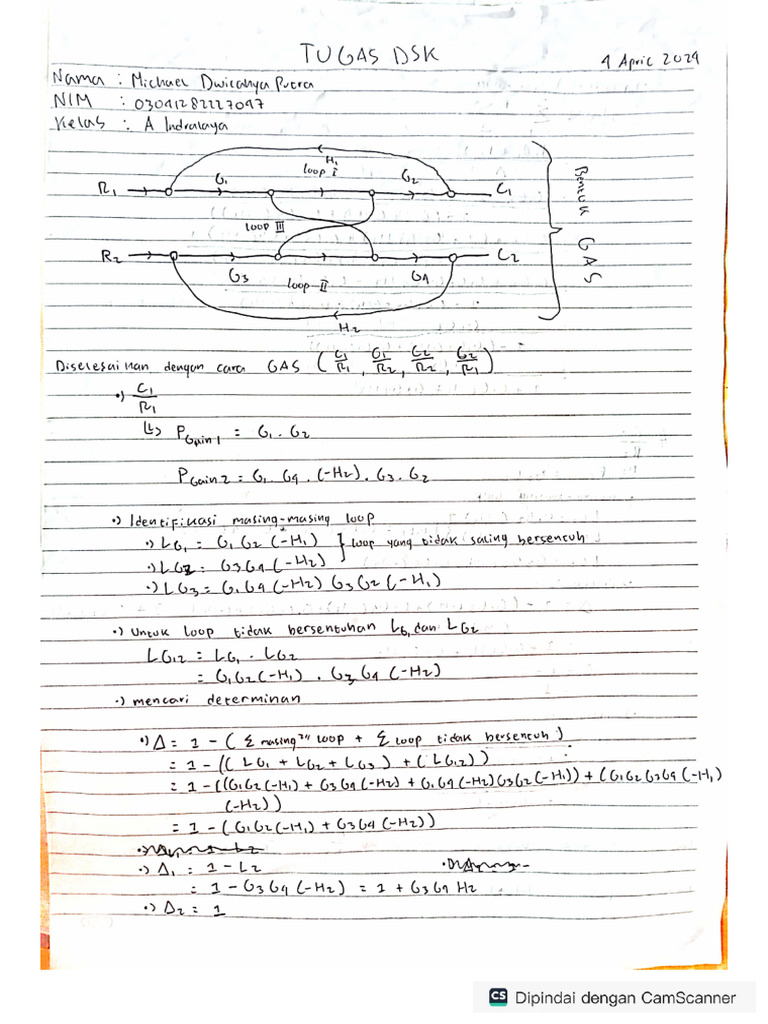 TUGAS DSK
4 April 2024
Nama : Michael Dwicahya Putra
NIM : 03041282227047
Kelas : A Indralaya
H₁
loop I
R₁ G₁ G₂ C₁
loop III
R₂ G₃ loop II G₄ C₂
H₂
Bentuk GAS
Diselesaikan dengan cara GAS ( C₁/R₁ , C₁/R₂ , C₂/R₂ , C₂/R₁ )
•) C₁/R₁
↳ P Gain 1 = G₁ . G₂
P Gain 2 = G₁ G₄ . (-H₂) . G₃ . G₂
•) Identifikasi masing-masing loop
•) LG₁ = G₁ G₂ (-H₁) } loop yang tidak saling bersentuh
•) LG₂ = G₃ G₄ (-H₂)
•) LG₃ = G₁ G₄ (-H₂) G₃ G₂ (-H₁)
•) Untuk loop tidak bersentuhan LG₁ dan LG₂
LG₁₂ = LG₁ . LG₂
= G₁G₂(-H₁) . G₃ G₄ (-H₂)
•) mencari determinan
•) Δ = 1 - ( Σ masing²" loop + Σ loop tidak bersentuh )
= 1 - (( LG₁ + LG₂ + LG₃ ) + ( LG₁₂ ))
= 1 - ((G₁G₂(-H₁) + G₃G₄(-H₂) + G₁G₄(-H₂)G₃G₂(-H₁)) + (G₁G₂G₃G₄(-H₁)
(-H₂))
= 1 - ( G₁G₂(-H₁) + G₃G₄(-H₂))
•) Δ₁ = 1 - L₂
= 1 - G₃ G₄ (-H₂) = 1 + G₃G₄ H₂
•) Δ₂ = 1
CS Dipindai dengan CamScanner